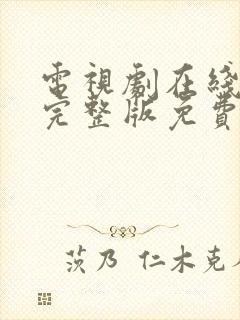 電視劇在綫
完整版免費
茨乃 仁木克